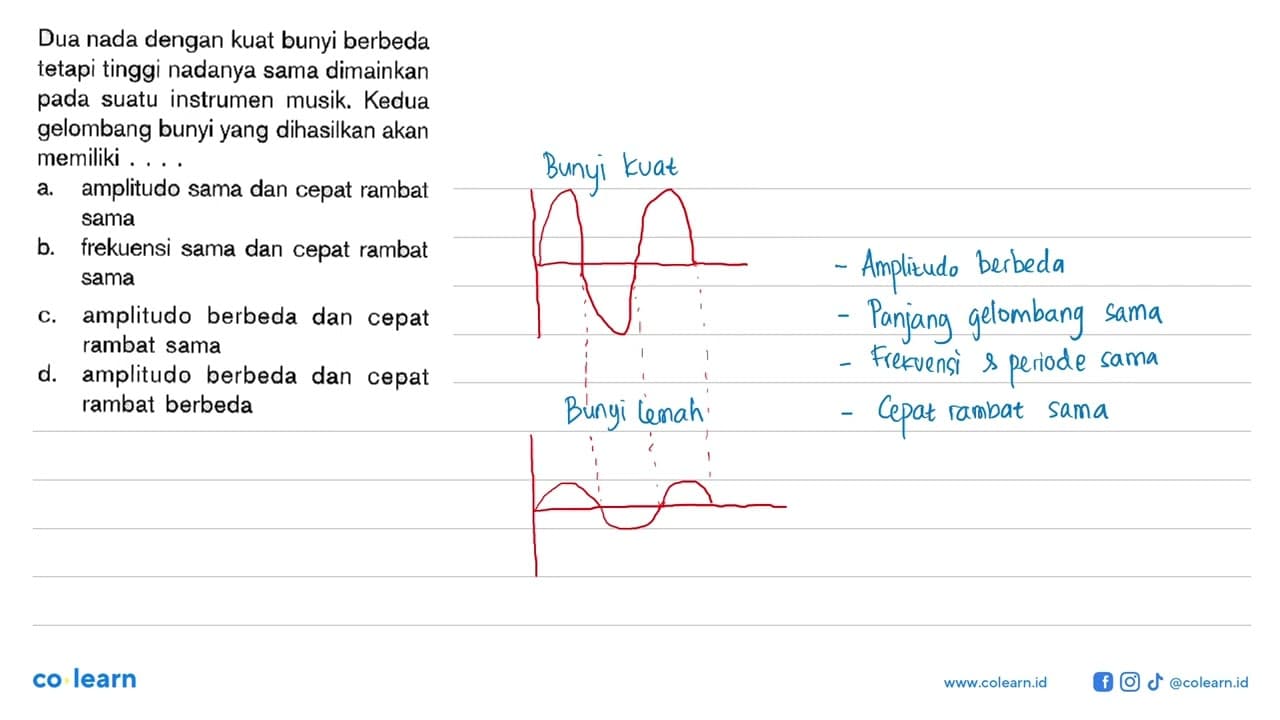 Dua nada dengan kuat bunyi berbeda
tetapi tinggi nadanya sama dimainkan
pada suatu instrumen musik. Kedua
gelombang bunyi yang dihasilkan akan
memiliki . . . .
a. amplitudo sama dan cepat rambat
sama
b. frekuensi sama dan cepat rambat
sama
c. amplitudo berbeda dan cepat
rambat sama
d. amplitudo berbeda dan cepat
rambat berbeda
Bunyi kuat
Bunyi lemah
- Amplitudo berbeda
- Panjang gelombang sama
- Frekuensi & periode sama
- Cepat rambat sama
co learn
www.colearn.id
@colearn.id